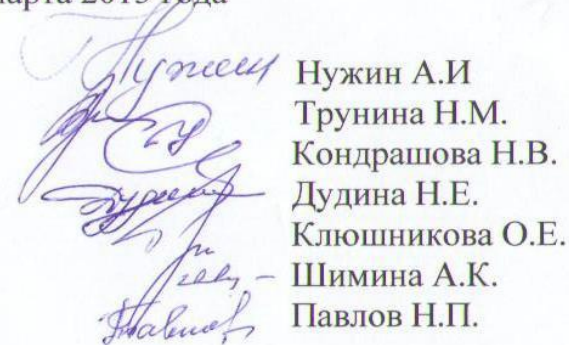 марта 2015 года
Нужин А.И
Трунина Н.М.
Кондрашова Н.В.
Дудина Н.Е.
Клюшникова О.Е.
Шимина А.К.
Павлов Н.П.